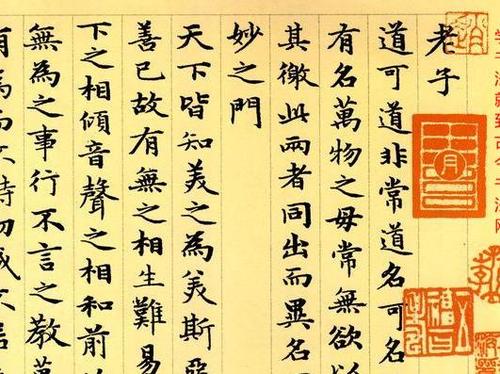 老子
道可道非常道名可名
有名萬物之母常無欲以
其徼此兩者同出而異名
妙之門
天下皆知美之為美斯惡
善已故有無之相生難易
下之相傾音聲之相和前
無為之事行不言之教萬
有為而不恃功成不